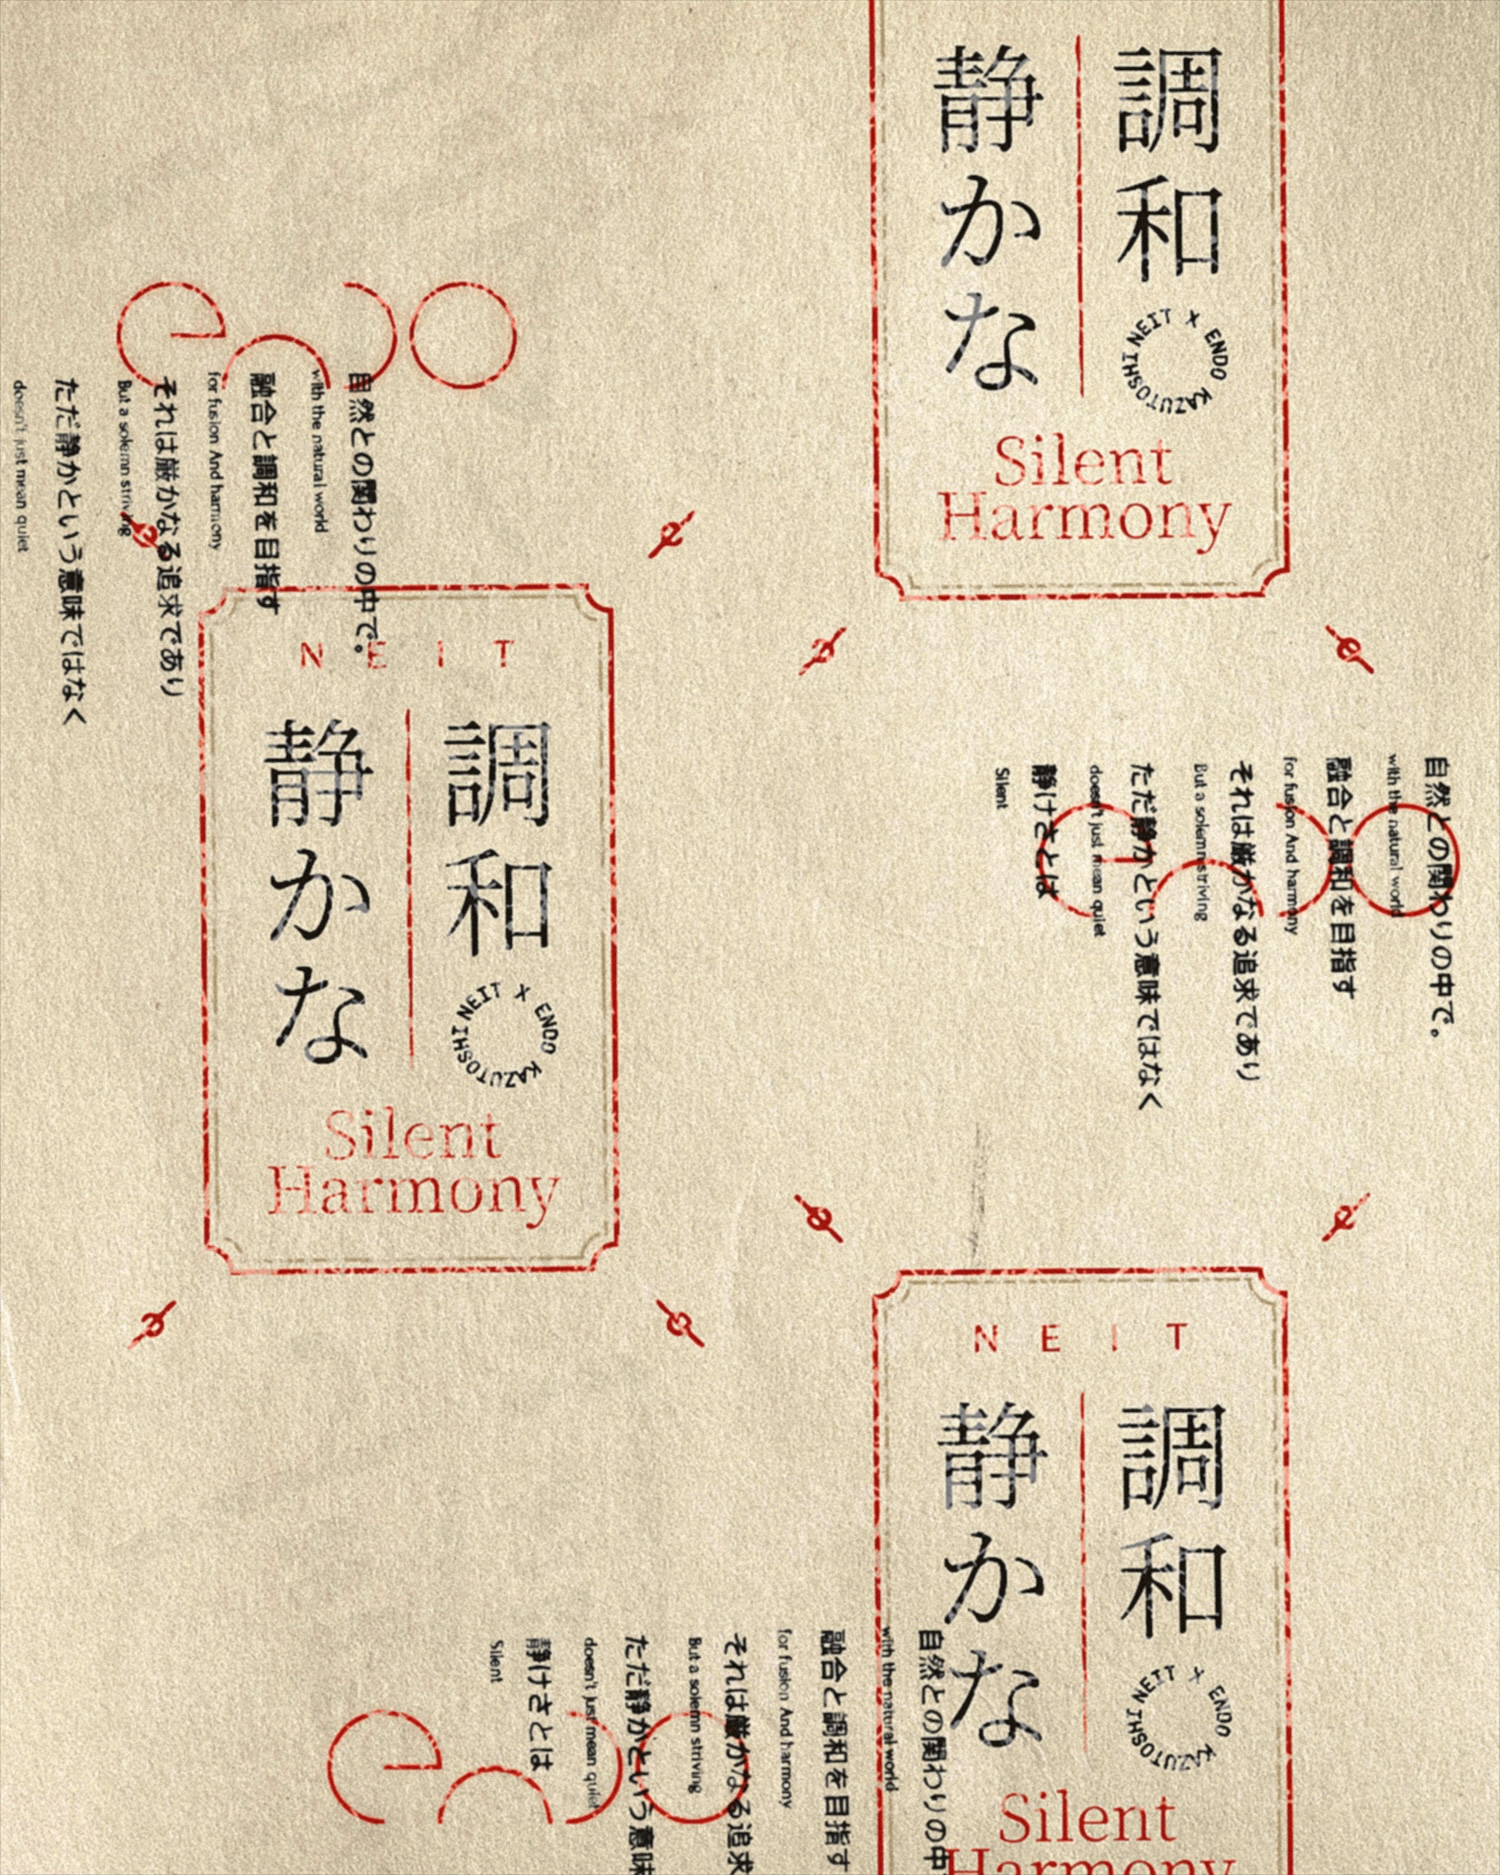 調和
静かな
NEIT X ENDO KAZUTOSHI
Silent
Harmony
自然との関わりの中で。
with the natural world
融合と調和を目指す
for fusion And harmony
それは厳かなる追求であり
But a solemn striving
ただ静かという意味ではなく
doesn't just mean quiet
NEIT
調和
静かな
NEIT X ENDO KAZUTOSHI
Silent
Harmony
自然との関わりの中で。
with the natural world
融合と調和を目指す
for fusion And harmony
それは厳かなる追求であり
But a solemn striving
ただ静かという意味ではなく
doesn't just mean quiet
静けさとは
Silent
NEIT
調和
静かな
NEIT X ENDO KAZUTOSHI
Silent
Harmony
自然との関わりの中
with the natural world
融合と調和を目指す
for fusion And harmony
それは厳かなる追求
But a solemn striving
ただ静かという意味
doesn't just mean quiet
静けさとは
Silent